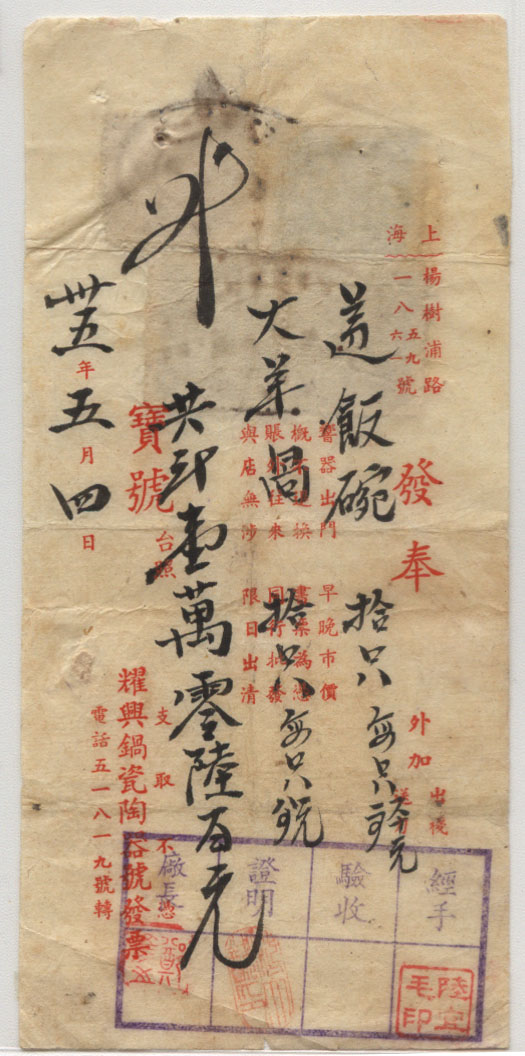 上海
楊樹浦路
一八五九號
六一
奉發
外加
出後
蓋飯碗 拾只 每只
大菜 拾只 每只
磁器出門 概不退換
賬外往來 與店無涉
早晚市價 書票為憑
同行批發 限日出清
共計壹萬零陸百元
寶號 台照
支取不憑
卅五年五月四日
耀興鍋瓷陶器號發票
電話五一八一九號轉
經手
驗收
證明
廠長
陸宜毛印